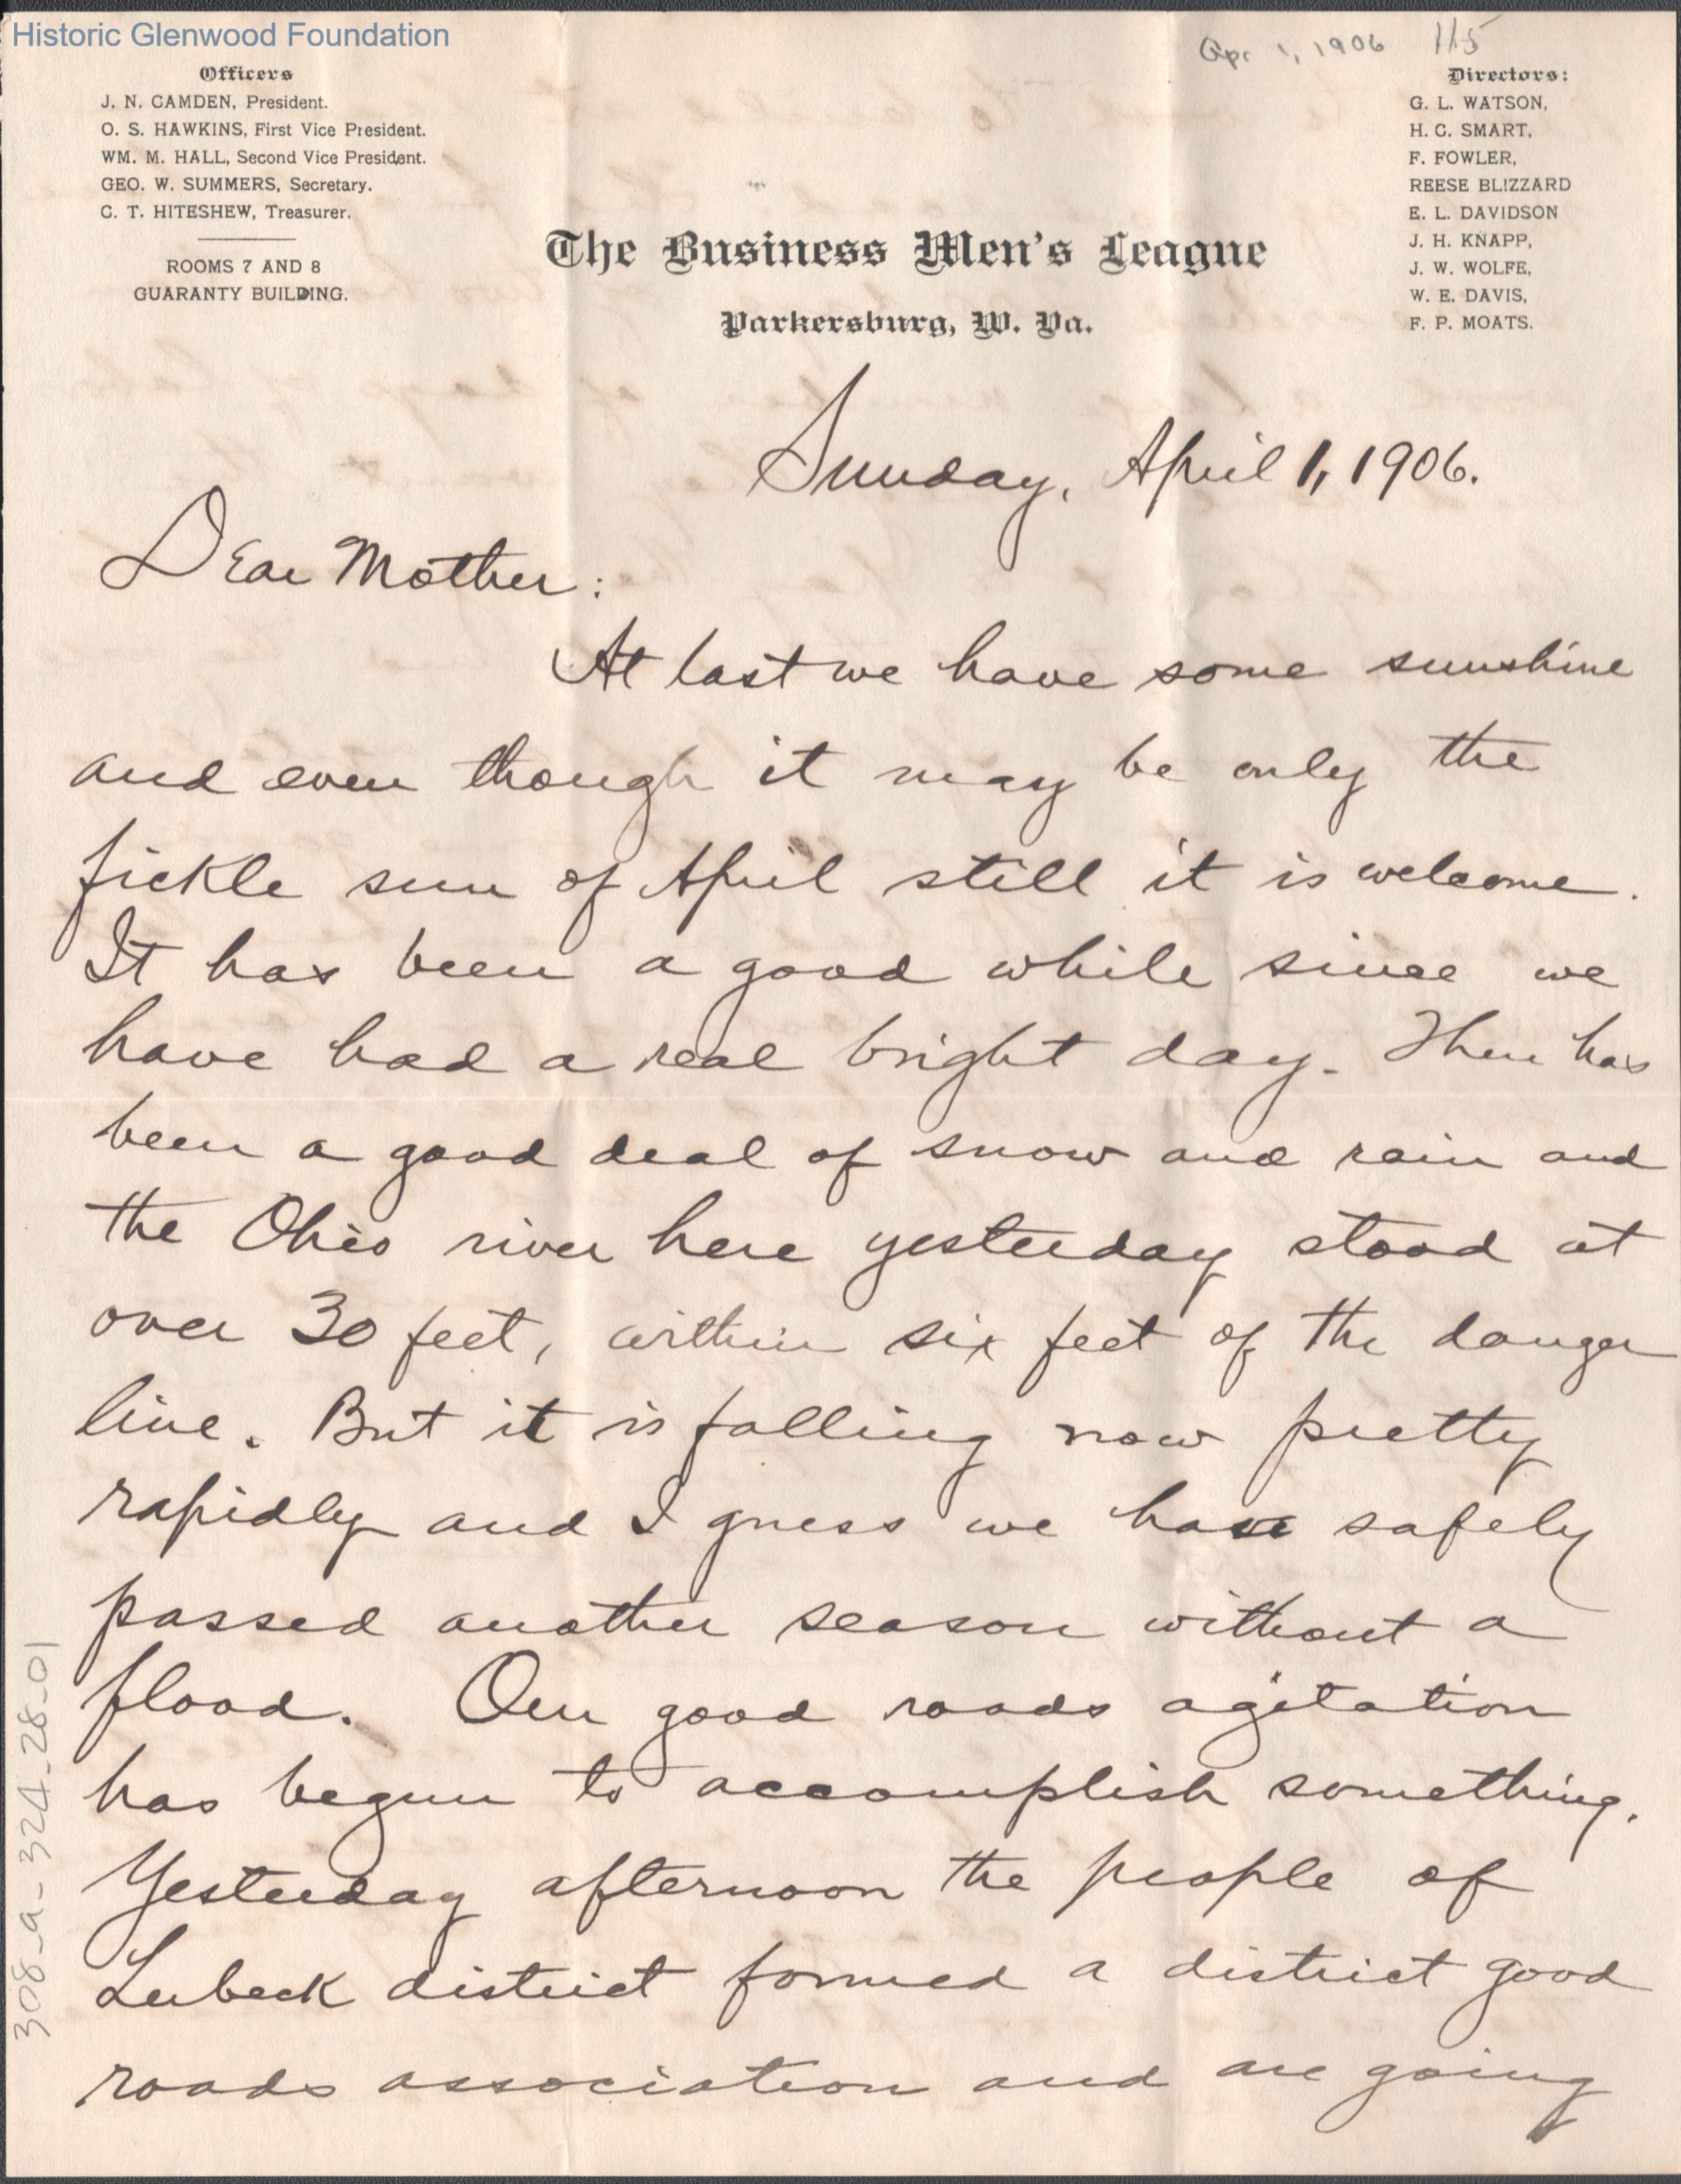 Historic Glenwood Foundation
Apr 1, 1906 115
Officers
J. N. CAMDEN, President.
O. S. HAWKINS, First Vice President.
WM. M. HALL, Second Vice President.
GEO. W. SUMMERS, Secretary.
C. T. HITESHEW, Treasurer.
ROOMS 7 AND 8
GUARANTY BUILDING.
Directors:
G. L. WATSON,
H. C. SMART,
F. FOWLER,
REESE BLIZZARD
E. L. DAVIDSON
J. H. KNAPP,
J. W. WOLFE,
W. E. DAVIS,
F. P. MOATS.
The Business Men's League
Parkersburg, W. Va.
Sunday, April 1, 1906.
Dear Mother:
At last we have some sunshine
and even though it may be only the
fickle sun of April still it is welcome.
It has been a good while since we
have had a real bright day. There has
been a good deal of snow and rain and
the Ohio river here yesterday stood at
over 30 feet, within six feet of the danger
line. But it is falling now pretty
rapidly and I guess we have safely
passed another season without a
flood. Our good roads agitation
has begun to accomplish something.
Yesterday afternoon the people of
Lubeck district formed a district good
roads association and are going
308-a-324-28-01